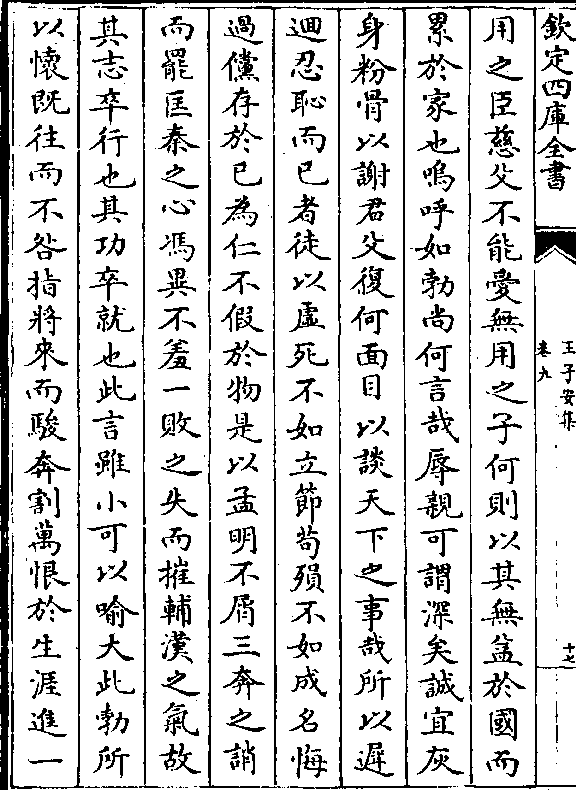 欽定四庫全書
王子安集
卷九
十七
用之臣慈父不能愛無用之子何則以其無益於國而
累於家也嗚呼如勃尚何言哉辱親可謂深矣誠宜灰
身粉骨以謝君父復何面目以談天下之事哉所以遲
迴忍恥而已者徒以虛死不如立節茍殞不如成名悔
過儻存於已為仁不假於物是以孟明不屑三奔之誚
而罷匡秦之心馮異不羞一敗之失而摧輔漢之氣故
其志卒行也其功卒就也此言雖小可以喻大此勃所
以懷既往而不咎指將來而駿奔割萬恨於生涯進一